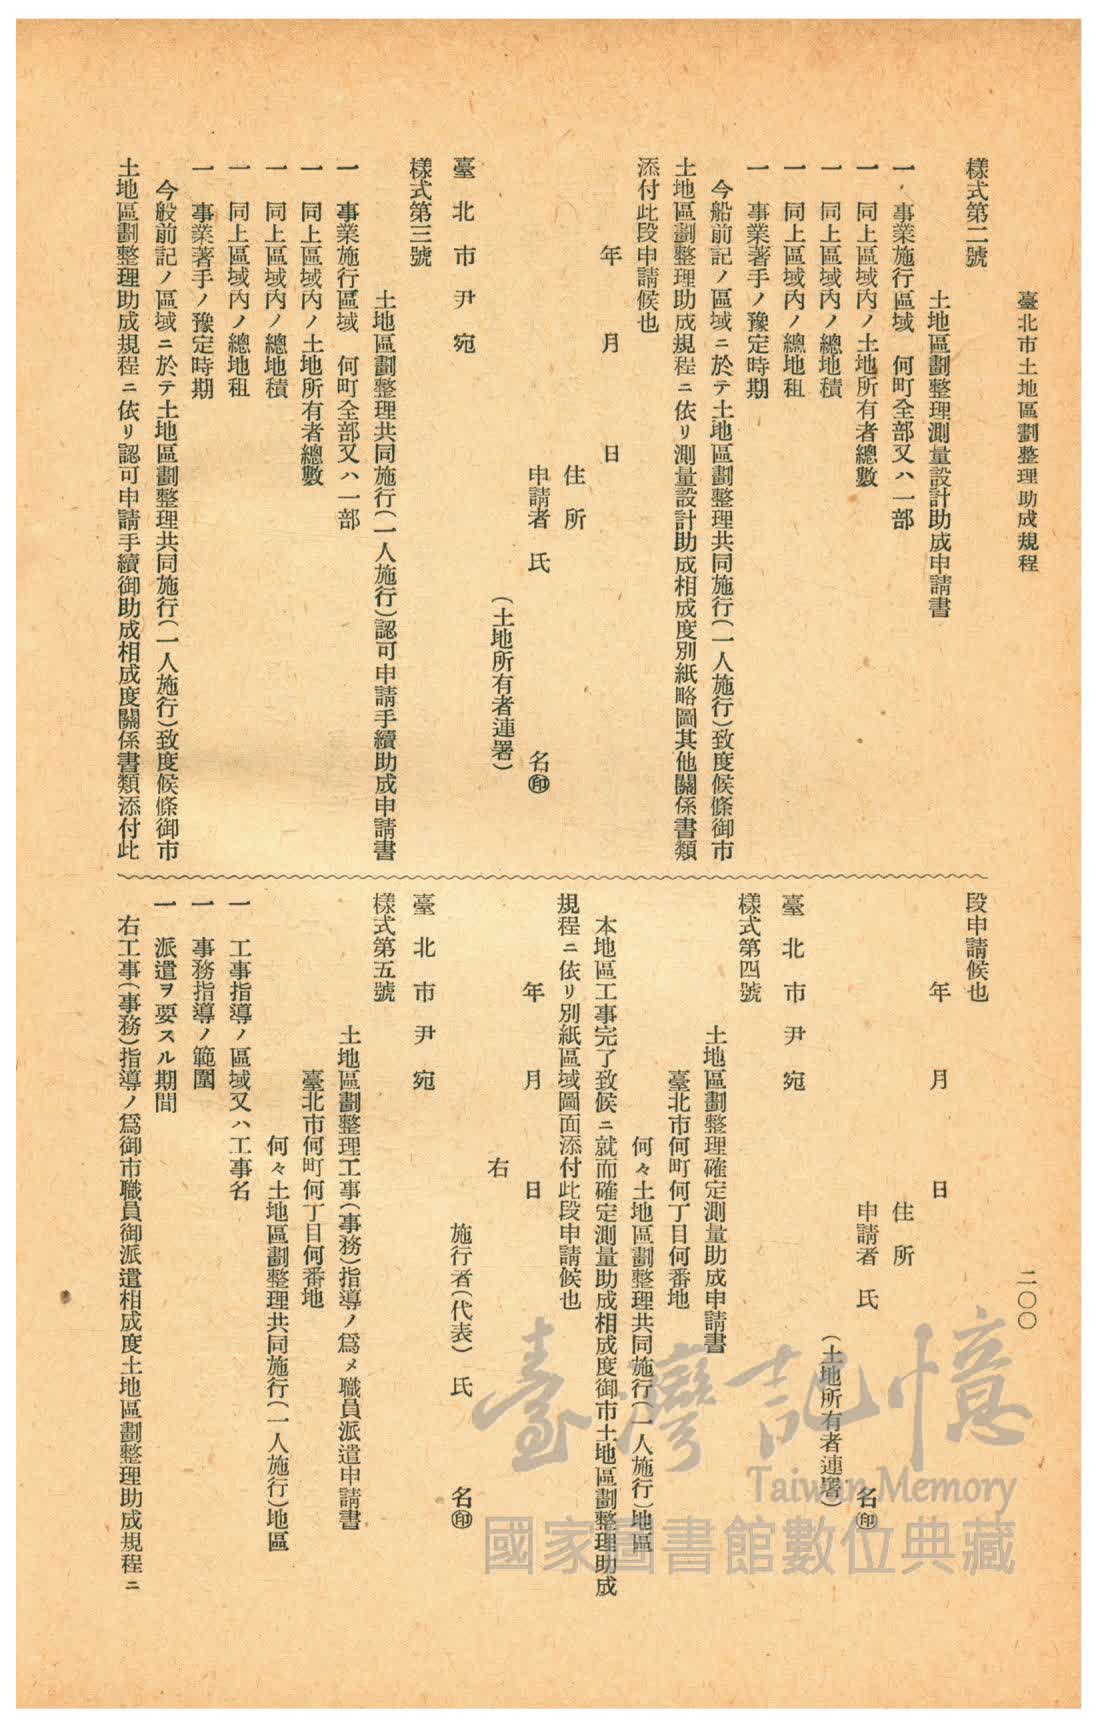 臺北市土地區劃整理助成規程
二〇〇
樣式第二號
土地區劃整理測量設計助成申請書
一 事業施行區域 何町全部又ハ一部
一 同上區域內ノ土地所有者總數
一 同上區域內ノ總地積
一 同上區域內ノ總地租
一 事業著手ノ豫定時期
今船前記ノ區域ニ於テ土地區劃整理共同施行(一人施行)致度候條御市
土地區劃整理助成規程ニ依リ測量設計助成相成度別紙略圖其他關係書類
添付此段申請候也
年 月 日
住所
申請者 氏 名㊞
(土地所有者連署)
臺北市尹宛
樣式第三號
土地區劃整理共同施行(一人施行)認可申請手續助成申請書
一 事業施行區域 何町全部又ハ一部
一 同上區域內ノ土地所有者總數
一 同上區域內ノ總地積
一 同上區域內ノ總地租
一 事業著手ノ豫定時期
今般前記ノ區域ニ於テ土地區劃整理共同施行(一人施行)致度候條御市
土地區劃整理助成規程ニ依リ認可申請手續御助成相成度關係書類添付此
段申請候也
年 月 日
住所
申請者 氏 名㊞
(土地所有者連署)
臺北市尹宛
樣式第四號
土地區劃整理確定測量助成申請書
臺北市何町何丁目何番地
何々土地區劃整理共同施行(一人施行)地區
本地區工事完了致候ニ就而確定測量助成相成度御市土地區劃整理助成
規程ニ依リ別紙區域圖面添付此段申請候也
年 月 日
右
施行者(代表) 氏 名㊞
臺北市尹宛
樣式第五號
土地區劃整理工事(事務)指導ノ爲メ職員派遣申請書
臺北市何町何丁目何番地
何々土地區劃整理共同施行(一人施行)地區
一 工事指導ノ區域又ハ工事名
一 事務指導ノ範圍
一 派遣ヲ要スル期間
右工事(事務)指導ノ爲御市職員御派遣相成度土地區劃整理助成規程ニ
臺灣記憶
Taiwan Memory
國家圖書館數位典藏